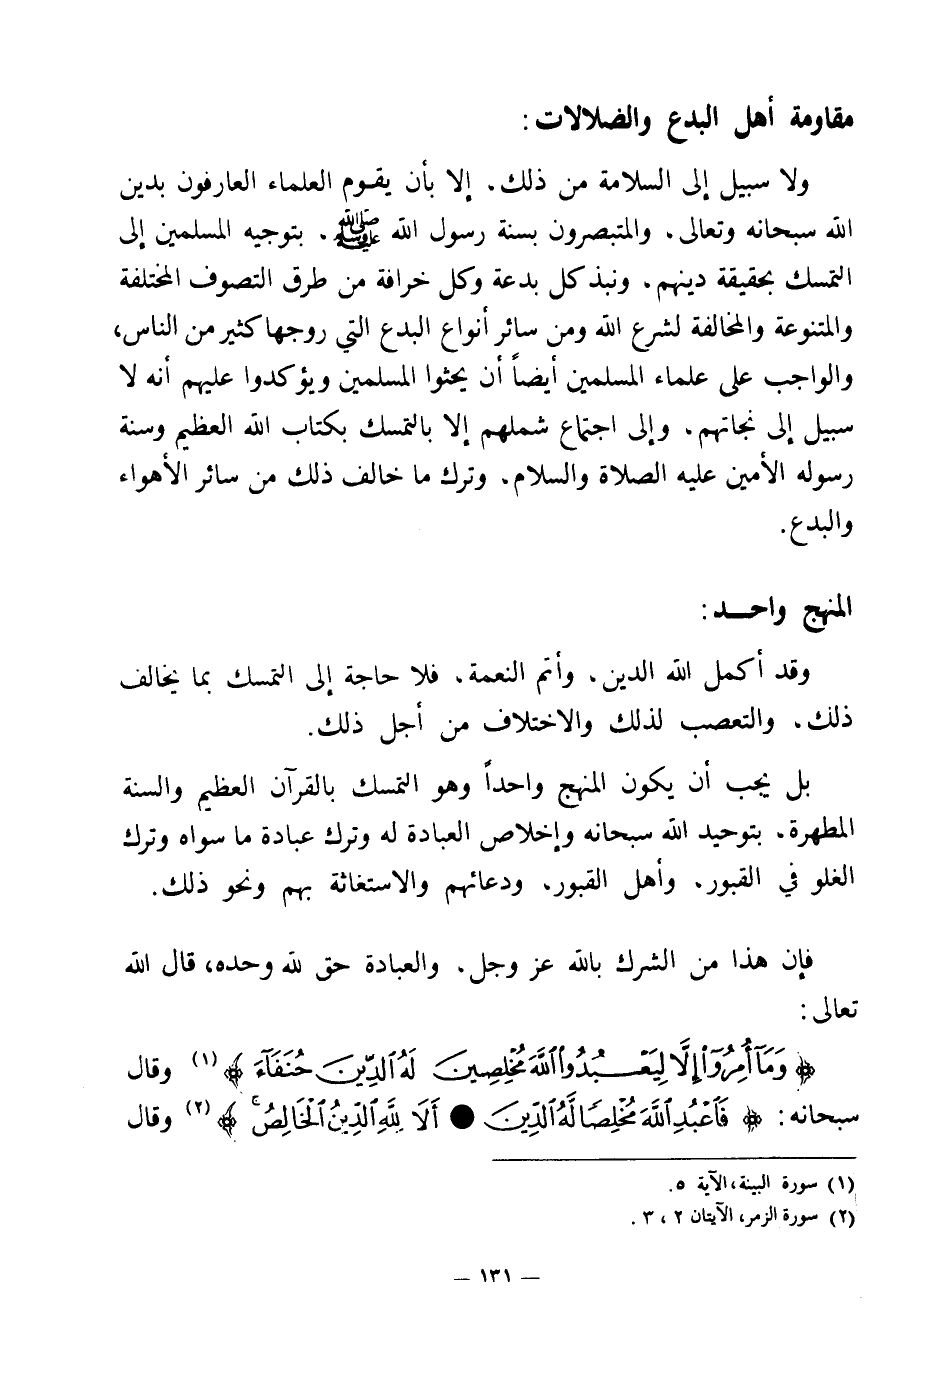 مقاومة أهل البدع والضلالات :
ولا سبيل إلى السلامة من ذلك. إلا بأن يقـوم العلماء العارفون بدين
الله سبحانه وتعالى. والمتبصرون بسنة رسول الله ﷺ. بتوجيه المسلمين إلى
التمسك بحقيقة دينهم. ونبذ كل بدعة وكل خرافة من طرق التصوف المختلفة
والمتنوعة والمخالفة لشرع الله ومن سائر أنواع البدع التي روجها كثير من الناس،
والواجب على علماء المسلمين أيضاً أن يحثوا المسلمين ويؤكدوا عليهم أنه لا
سبيل إلى نجاتهم. وإلى اجتماع شملهم إلا بالتمسك بكتاب الله العظيم وسنة
رسوله الأمين عليه الصلاة والسلام. وترك ما خالف ذلك من سائر الأهواء
والبدع.
المنهج واحـــد :
وقد أكمل الله الدين. وأتم النعمة. فلا حاجة إلى التمسك بما يخالف
ذلك. والتعصب لذلك والاختلاف من أجل ذلك.
بل يجب أن يكون المنهج واحداً وهو التمسك بالقرآن العظيم والسنة
المطهرة. بتوحيد الله سبحانه وإخلاص العبادة له وترك عبادة ما سواه وترك
الغلو في القبور. وأهل القبور. ودعائهم والاستغاثة بهم ونحو ذلك.
فإن هذا من الشرك بالله عز وجل. والعبادة حق لله وحده، قال الله
تعالى :
﴿ وَمَآ أُمِرُوٓاْ إِلَّا لِيَعۡبُدُواْ ٱللَّهَ مُخۡلِصِينَ لَهُ ٱلدِّينَ حُنَفَآءَ ﴾ (١) وقال
سبحانه : ﴿ فَٱعۡبُدِ ٱللَّهَ مُخۡلِصٗا لَّهُ ٱلدِّينَ ● أَلَا لِلَّهِ ٱلدِّينُ ٱلۡخَالِصُۚ ﴾ (٢) وقال
(١) سورة البينة، الآية ٥.
(٢) سورة الزمر، الآيتان ٢ ، ٣ .
— ١٣١ —